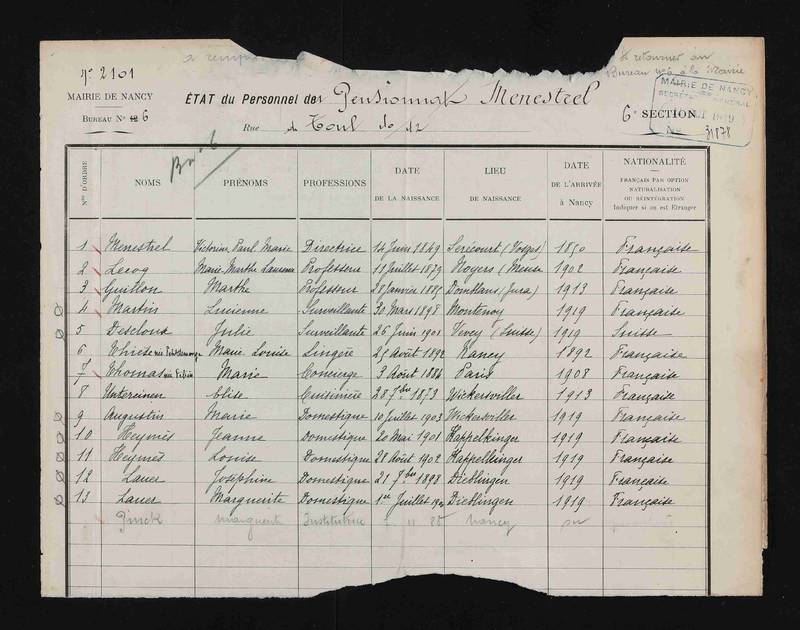 à retourner au
Bureau n°6 à la Mairie
N° 2101
MAIRIE DE NANCY
BUREAU N° 12 6
ÉTAT du Personnel des Pensionnat Menestrel
Rue de Toul
6e SECTION
MAIRIE DE NANCY
31878
Bau 6
Nos D'ORDRE NOMS PRÉNOMS PROFESSIONS DATE DE LA NAISSANCE LIEU DE NAISSANCE DATE DE L'ARRIVÉE à Nancy NATIONALITÉ
FRANÇAIS PAR OPTION
NATURALISATION
OU RÉINTÉGRATION
Indiquer si on est Étranger
1 Menestrel Victorine Paul Marie Directrice 14 1849 (Vosges) 1850 Française
2 Leroq Marie Marthe Professeur 11 Juillet 1879 Noyers (Meuse 1902 Française
3 Guillon Marthe Professeur 28 Janvier 1885 Domblans (Jura) 1913 Française
4 Martin Lucienne Surveillante 30 Mars 1898 Montenoy 1919 Française
5 Descloux Julie Surveillante 26 Juin 1901 Vevey (Suisse) 1919 Suisse
6 née Marie Louise Lingère 25 Août 1892 Nancy 1892 Française
7 Thomas née Marie Concierge 3 Août 1886 Paris 1908 Française
8 Untereiner Elise Cuisinière 28 7bre 1873 Wickersviller 1913 Française
9 Augustin Marie Domestique 10 Juillet 1903 Wickersviller 1919 Française
10 Heymès Jeanne Domestique 20 Mai 1901 Kappelkinger 1919 Française
11 Heymès Louise Domestique 28 Août 1902 Kappelkinger 1919 Française
12 Lauer Joséphine Domestique 21 7bre 1898 Dieblingen 1919 Française
13 Lauer Marguerite Domestique 1er Juillet Dieblingen 1919 Française
Marguerite Institutrice Nancy